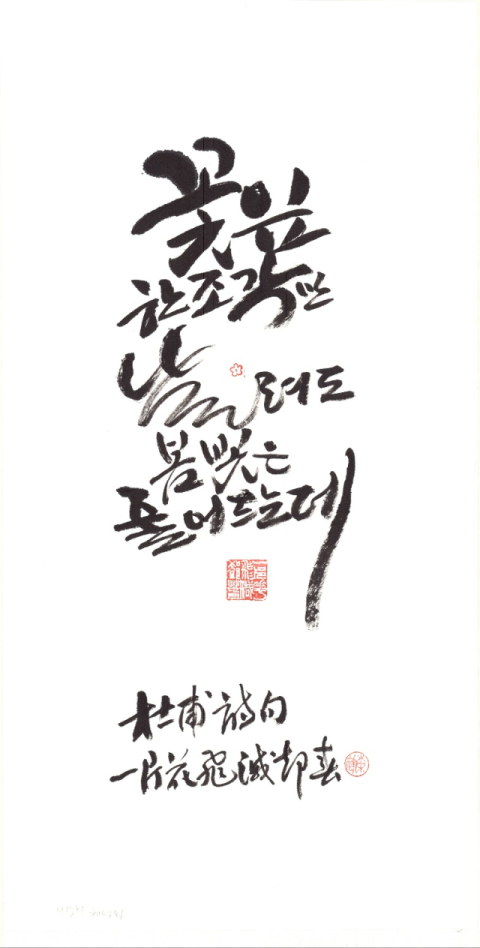 꽃잎
한 조각만
날려도
봄빛은
줄어드는데
杜甫 詩句
一片花飛減却春